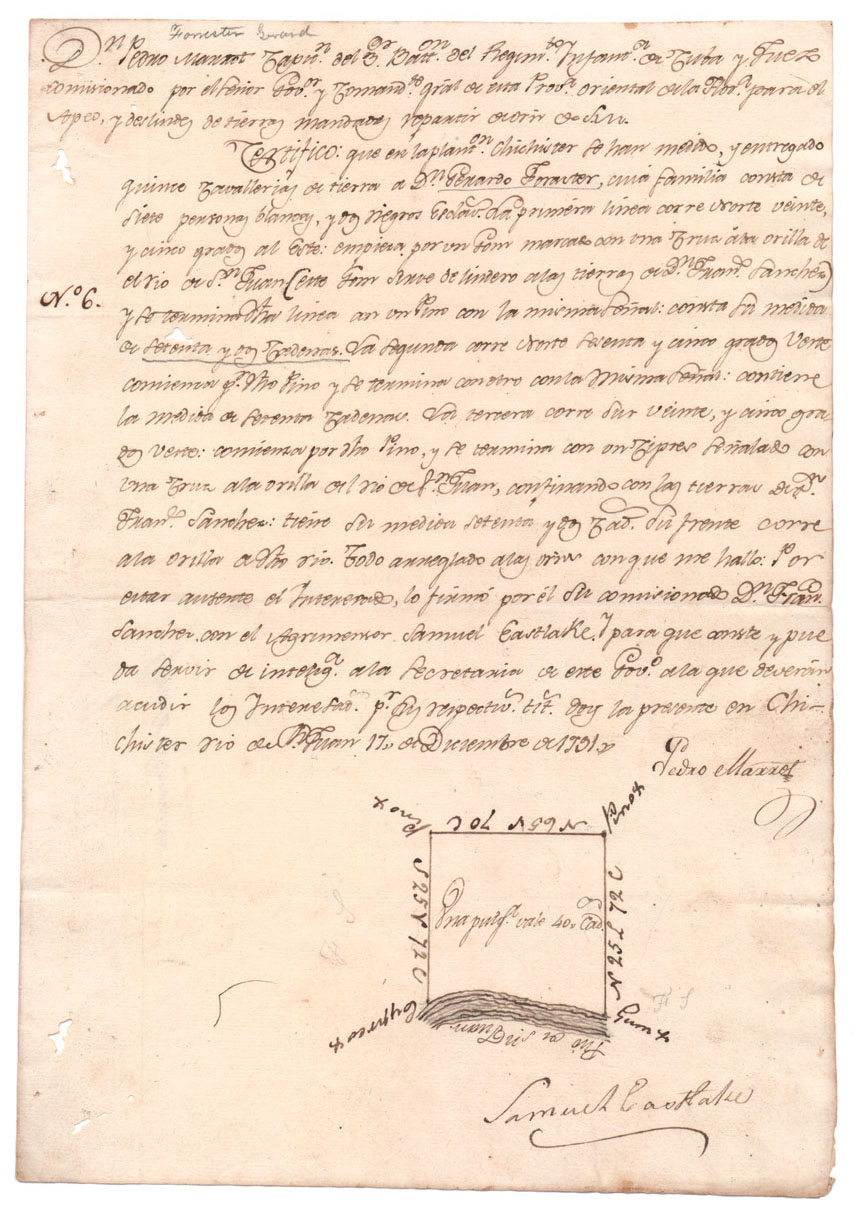 Forrester Gerard
Dn Pedro Marrot Capn. del 3r Batton del Regimto Infanta de Cuba y Juez
comisionado por el señor Govor y Comandte gral de esta Prova oriental de la Flora para el
Apeo, y deslindes de tierras mandadas repartir de orn de S.M.
Certifico: que en la planton Chichister se han medido, y entregado
quince Cavallerias de tierra a Dn Gerardo Foraster, cuia familia consta de
siete personas blancas, y dos negros Esclavs. La primera linea corre Norte veinte,
y cinco grados al Este: empieza por un Gom marcado con una Cruz á la orilla de
el rio de Sn Juan (este Gom sirve de lindero a las tierras de Dn Frano Sanchez)
No 6.
y se termina dha linea an un Pino con la misma señal: consta su medida
de setenta y dos Cadenas. La segunda corre Norte sesenta y cinco grados Veste
comienza pr dho Pino y se termina con otro con la misma señal: contiene
la medida de setenta Cadenas. La tercera corre Sur veinte, y cinco gra-
dos Veste: comienza por dho Pino, y se termina con un Cipres señalado con
una Cruz a la orilla del rio de Sn Juan, confinando con las tierras de Dn
Frano Sanchez: tiene su medida setenta y dos Cads. Su frente corre
a la orilla de dho rio. Todo arreglado a las orns con que me hallo: Por
estar ausente el Interesado, lo firmó por él su comisionado Dn Franco
Sanchez con el Agrimensor Samuel Eastlake. Y para que conste y pue
da servir de inteliga a la secretaria de este Govo a la que deverán
acudir los Interesads. pr sus respectivs. tits. doy la presente en Chi-
chister rio de Sn Juan 17 de Diciembre de 1791
Pedro Marrot
Pino x
N 65 V 70 C
Pino x
S 25 V 72 C
Una pulga vale 40 Cad
N 25 E 72 C
Cypres x
Rio de Sn Juan
Gum x
Samuel Eastlake